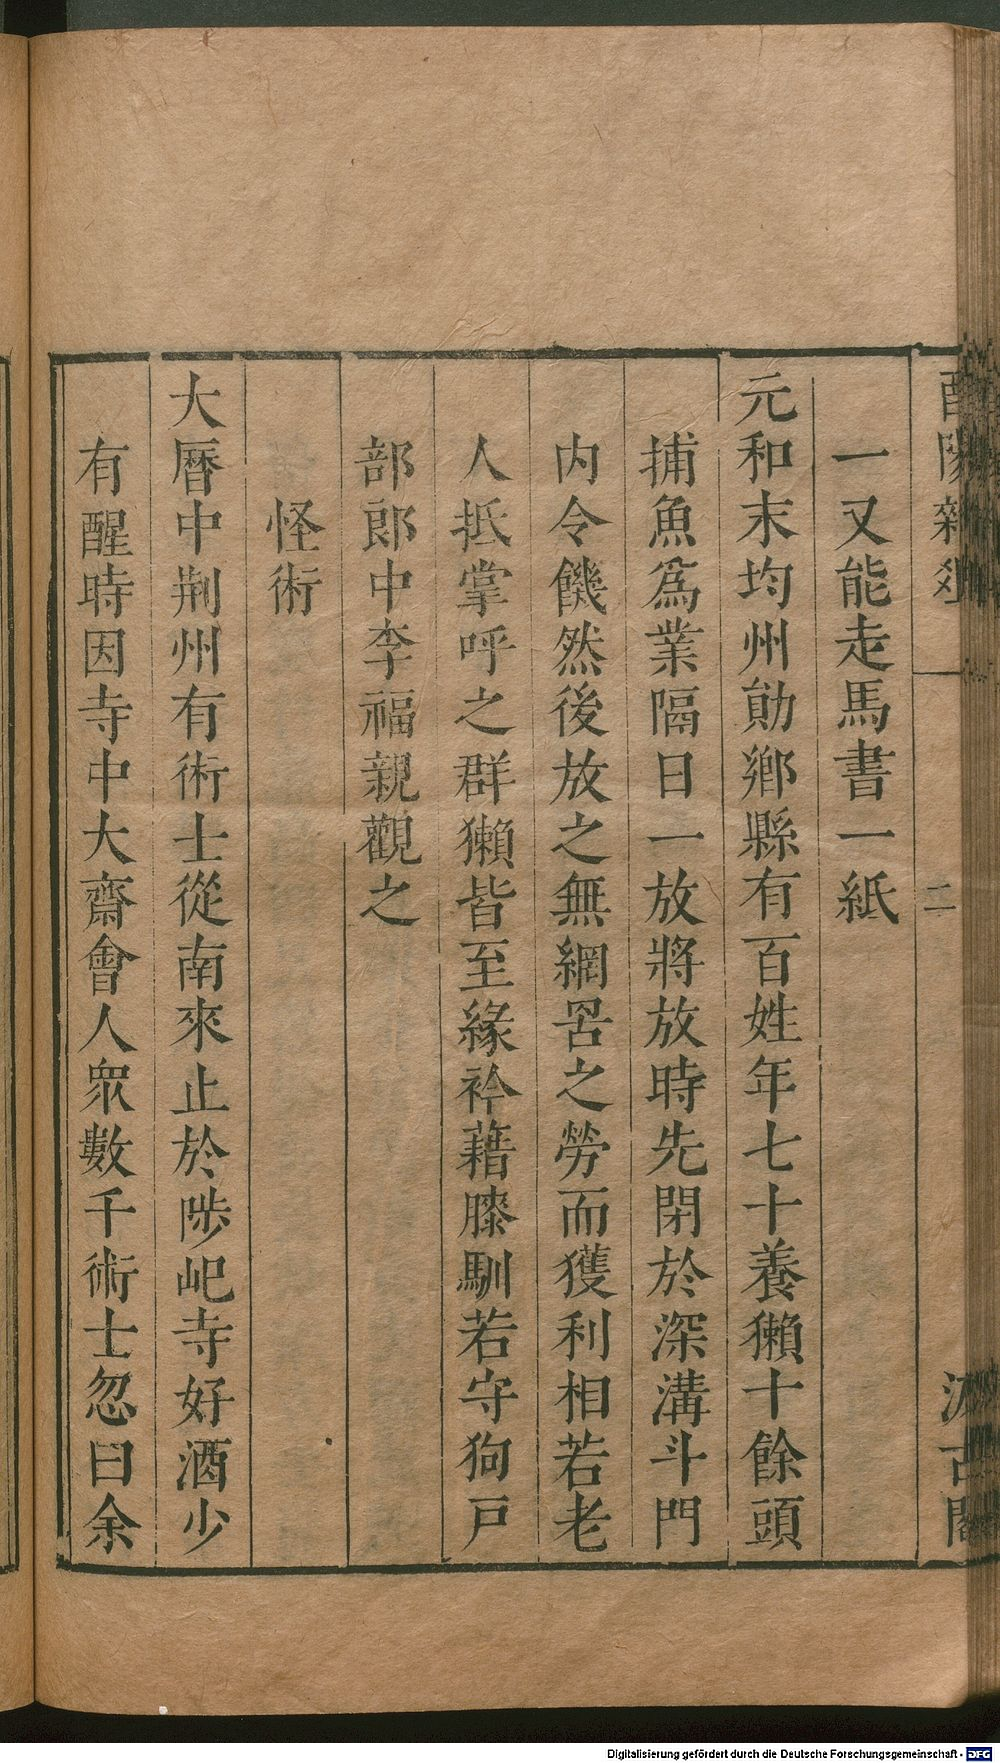 酉陽雜俎
二
汲古閣
一又能走馬書一紙
元和末均州勛鄉縣有百姓年七十養獺十餘頭
捕魚爲業隔日一放將放時先閉於深溝斗門
内令饑然後放之無網罟之勞而獲利相若老
人抵掌呼之群獺皆至緣衿藉膝馴若守狗戸
部郎中李福親觀之
怪術
大曆中荆州有術士從南來止於陟屺寺好酒少
有醒時因寺中大齋會人衆數千術士忽曰余
Digitalisierung gefördert durch die Deutsche Forschungsgemeinschaft - DFG